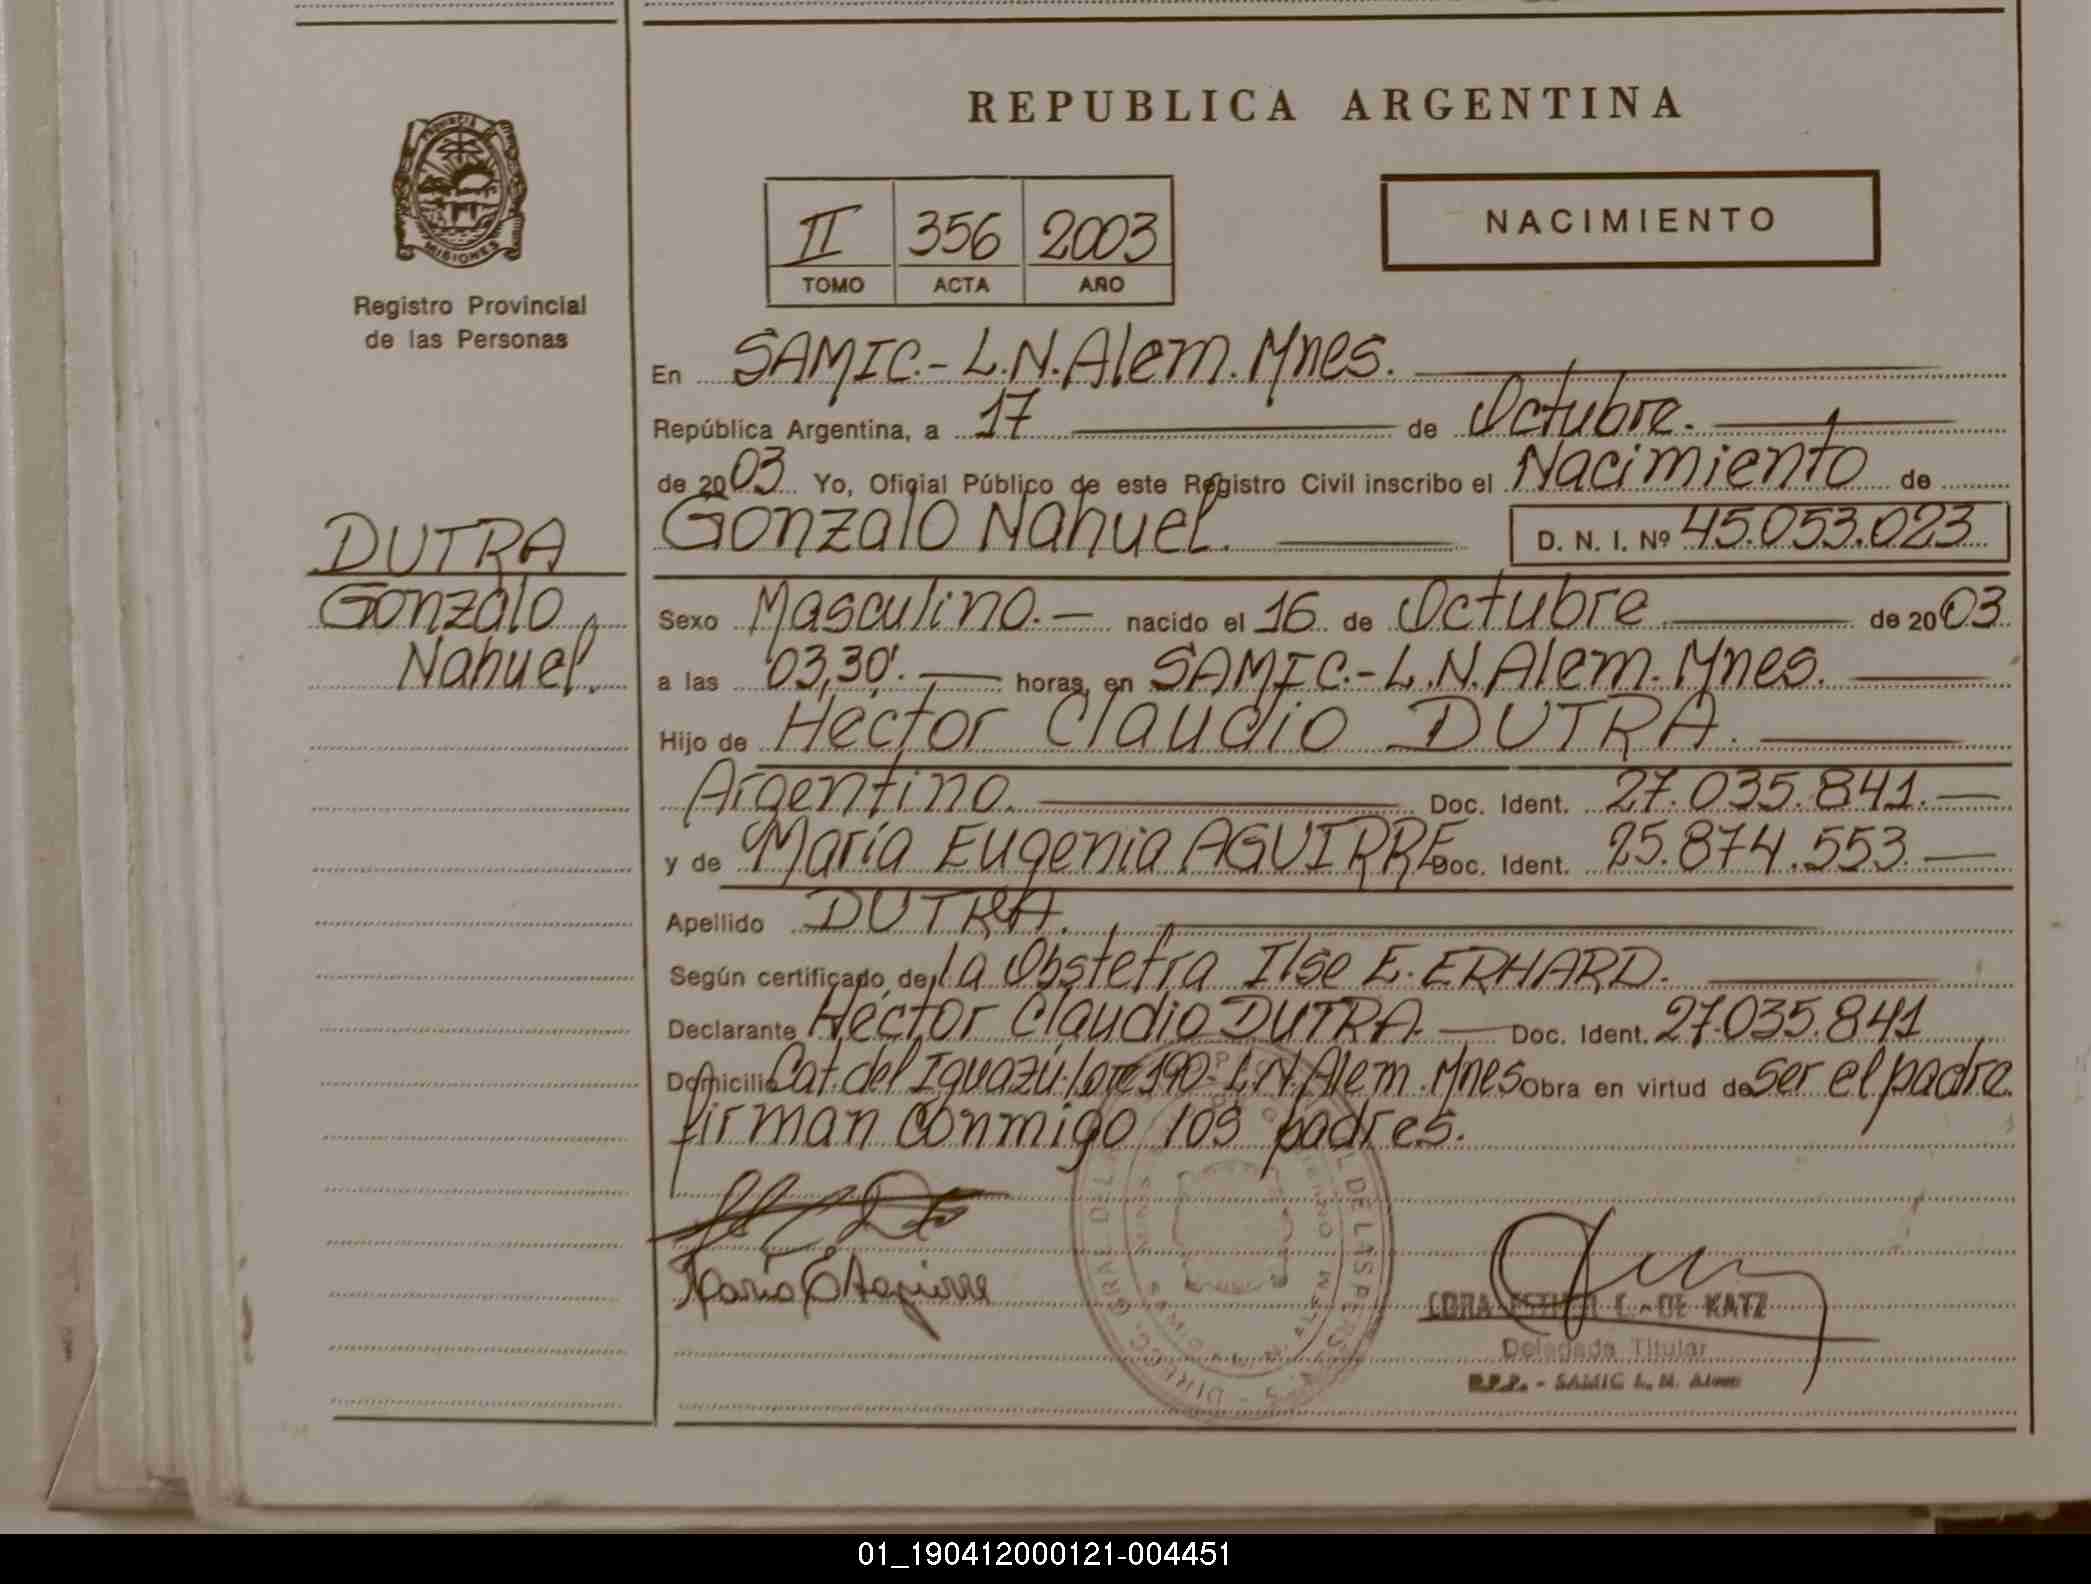 REPUBLICA ARGENTINA
PROVINCIA DE
MISIONES
Registro Provincial
de las Personas
II 356 2003
TOMO ACTA AÑO
NACIMIENTO
En SAMIC.- L.N.Alem.Mnes.
República Argentina, a 17 de Octubre.
de 2003 Yo, Oficial Público de este Registro Civil inscribo el Nacimiento de
DUTRA
Gonzalo
Nahuel.
Gonzalo Nahuel. D. N. I. Nº 45.053.023
Sexo Masculino.- nacido el 16 de Octubre de 2003
a las 03,30'. horas, en SAMIC.-L.N.Alem.Mnes.
Hijo de Héctor Claudio DUTRA.
Argentino. Doc. Ident. 27.035.841.-
y de María Eugenia AGUIRRE Doc. Ident. 25.874.553.-
Apellido DUTRA.
Según certificado de la Obstetra Ilse E. ERHARD.
Declarante Héctor Claudio DUTRA.- Doc. Ident. 27.035.841
Domicilio Cat. del Iguazú. 190- L.N.Alem.Mnes Obra en virtud de ser el padre
firman conmigo los padres.
María E Aguirre
DE KATZ
Delegada Titular
R.P.P. - SAMIC L. N. Alem
01_190412000121-004451